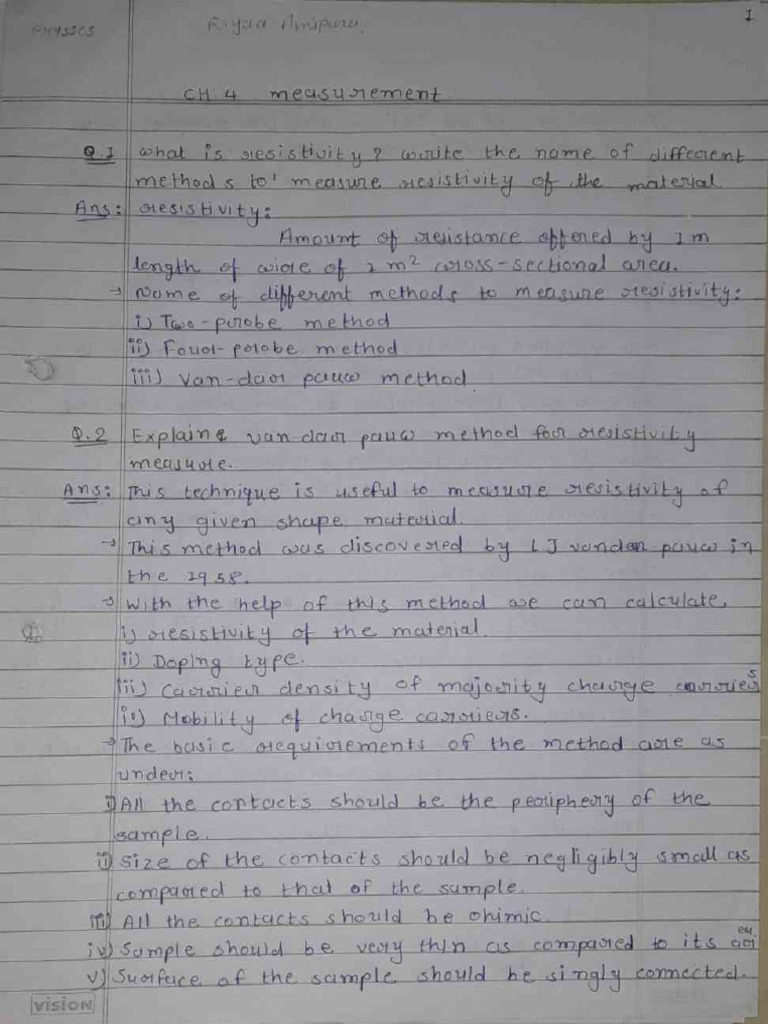 PHYSSCS
Riyaa
1
CH. 4 measurement
Q.1 what is resistivity? write the name of different
methods to' measure resistivity of the material.
Ans: resistivity:
Amount of resistance offered by 1m
length of wire of 1 m² cross-sectional area.
→ Name of different methods to measure resistivity:
i) Two-probe method
ii) Four-probe method
iii) van-darr pauw method.
Q.2 Explaine van-darr pauw method for resistivity
measure.
Ans: This technique is useful to measure resistivity of
any given shape material.
→ This method was discovered by LJ vanden pauw in
the 1958.
→ With the help of this method we can calculate,
i) resistivity of the material.
ii) Doping type.
iii) Carrier density of majority charge carriers
iv) Mobility of charge carriers.
→ The basic requirements of the method are as
under:
i) All the contacts should be the periphery of the
sample.
ii) size of the contacts should be negligibly small as
compared to that of the sample.
iii) All the contacts should be ohimic.
iv) Sample should be very thin as compared to its
v) Surface of the sample should be singly connected.
vision